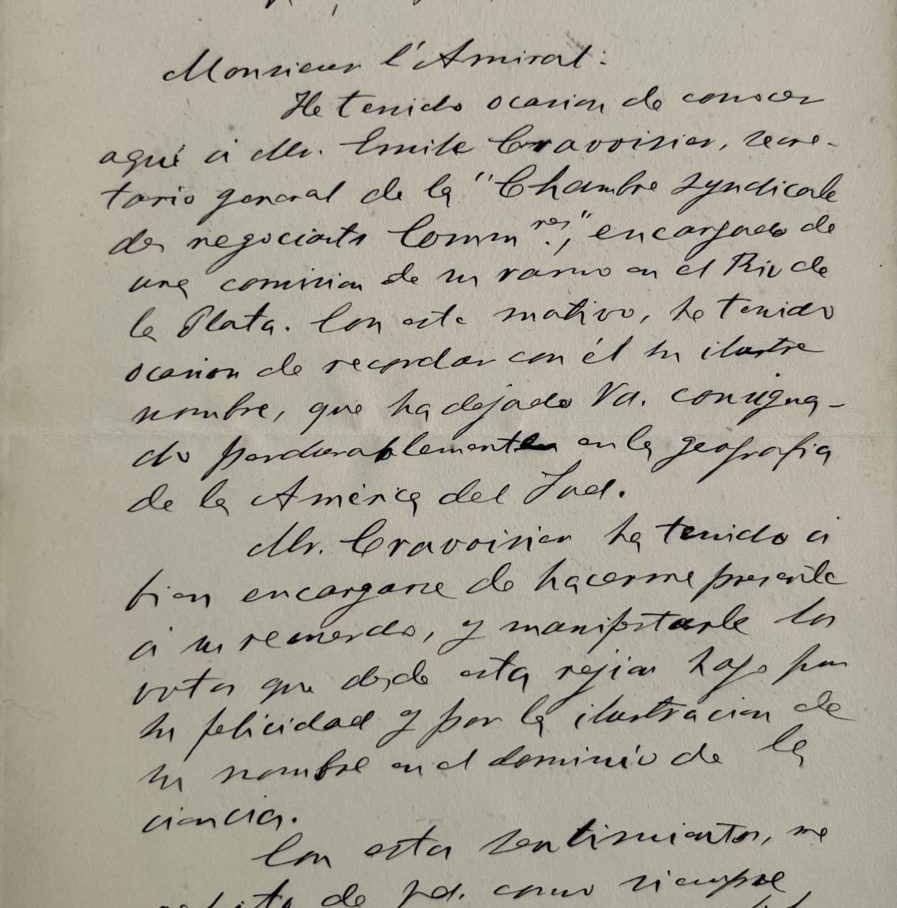 Monsieur l'Amiral:
He tenido ocasion de conocer
aqui á Mr. Emile Cravoisier, secre-
tario general de la "Chambre syndicale
des negociants Comm.res", encargado de
una comision de su ramo en el Rio de
la Plata. Con este motivo, he tenido
ocasion de recordar con él su ilustre
nombre, que ha dejado Vd. consigna-
do perdurablemente en la geografia
de la América del Sud.
Mr. Cravoisier ha tenido á
bien encargarse de hacerme presente
á su recuerdo, y manifestarle los
votos que desde esta rejion hago por
su felicidad y por la ilustracion de
su nombre en el dominio de la
ciencia.
Con estos sentimientos, me
repito de Vd. como siempre